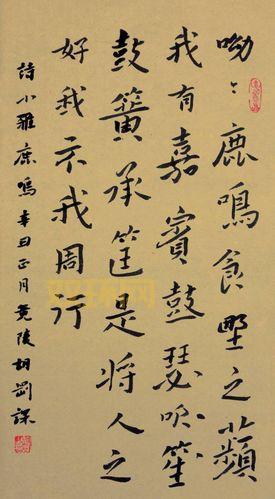 呦〻鹿鳴食野之蘋
我有嘉賓鼓瑟吹笙
鼓簧承筐是將人之
好我示我周行
詩小雅鹿鳴辛丑正月竟陵胡劉